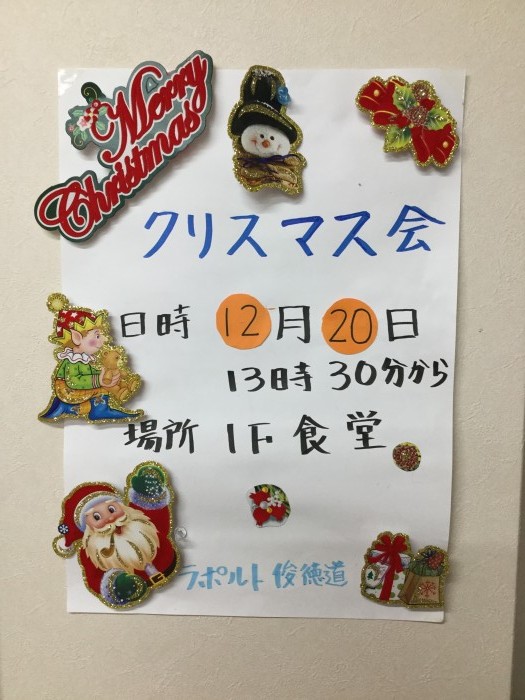 Merry
Christmas
クリスマス会
日時 12月20日
13時30分から
場所 1F食堂
ラポルト俊徳道